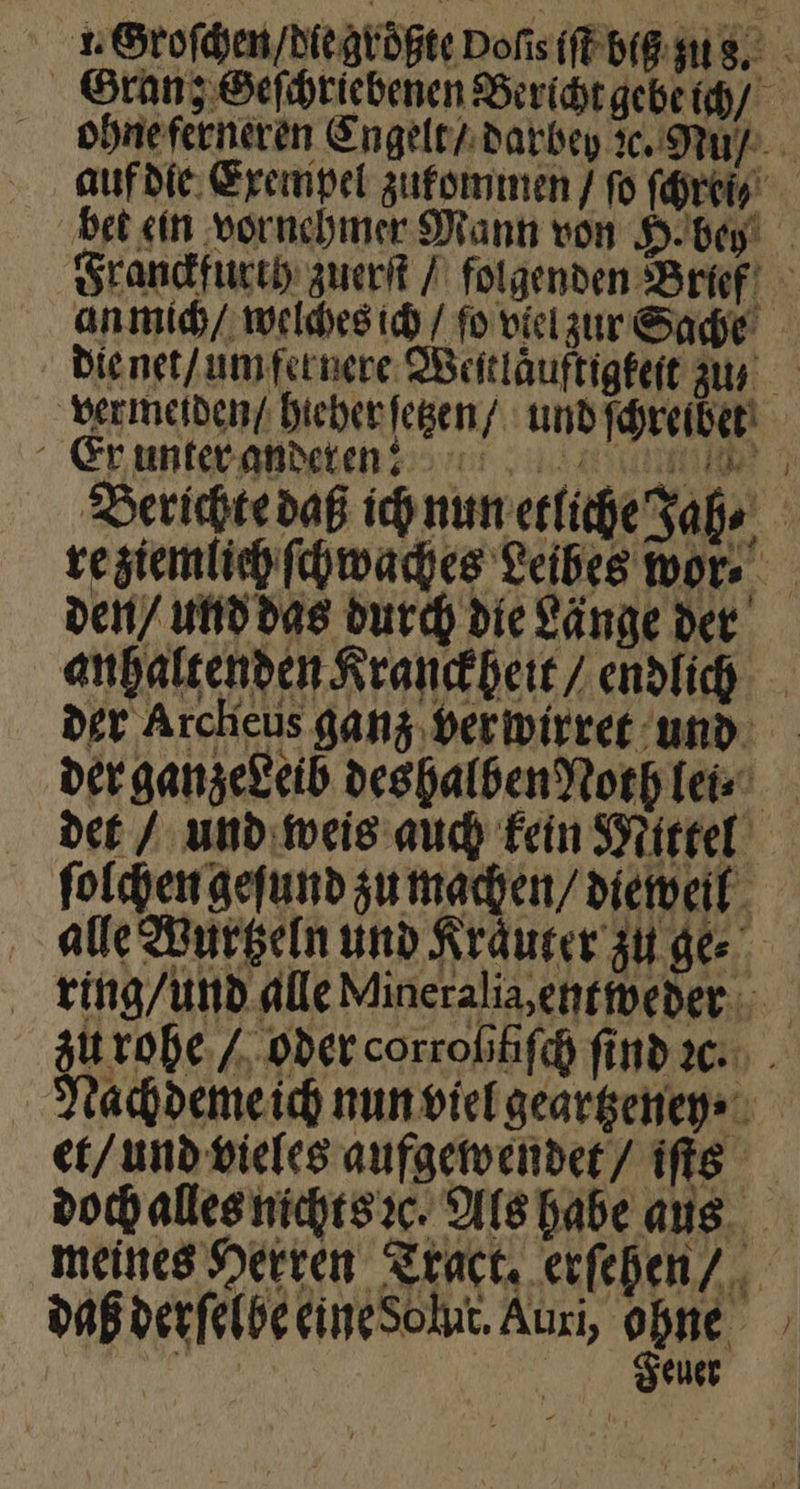 1. Groſchen/die groͤßte Doſis iſt biß zu 8.
Gran; Geſchriebenen Bericht gebe ich/
ohne ferneren Engelt/ darbey ꝛc. Nu/
auf die Exempel zukommen / ſo ſchrei⸗
bet ein vornehmer Mann von H. bey
Franckfurth zuerſt / folgenden Brief
an mich/ welches ich / ſo viel zur Sache
dienet/ um fernere Weitlaͤuftigkeit zu⸗
vermeiden/ hieher ſetzen/ und ſchreibet
Er unter anderen:
Berichte daß ich nun etliche Jah⸗
re ziemlich ſchwaches Leibes wor⸗
den/ und das durch die Länge der
anhaltenden Kranckheit / endlich
der Archeus ganz verwirret und
der ganze Leib deshalben Noth lei⸗
det / und weis auch kein Mittel
ſolchen geſund zu machen/ dieweil
alle Wurtzeln und Kraͤuter zu ge⸗
ring/und alle Mineralia, entweder
zu rohe / oder corroſifiſch ſind ꝛc.
Nachdeme ich nun viel geartzeney⸗
et/ und vieles aufgewendet / iſts
doch alles nichts ꝛc. Als habe aus
meines Herren Tract. erſehen /
daß derſelbe eine Solut. Auri, ohne
Feuer